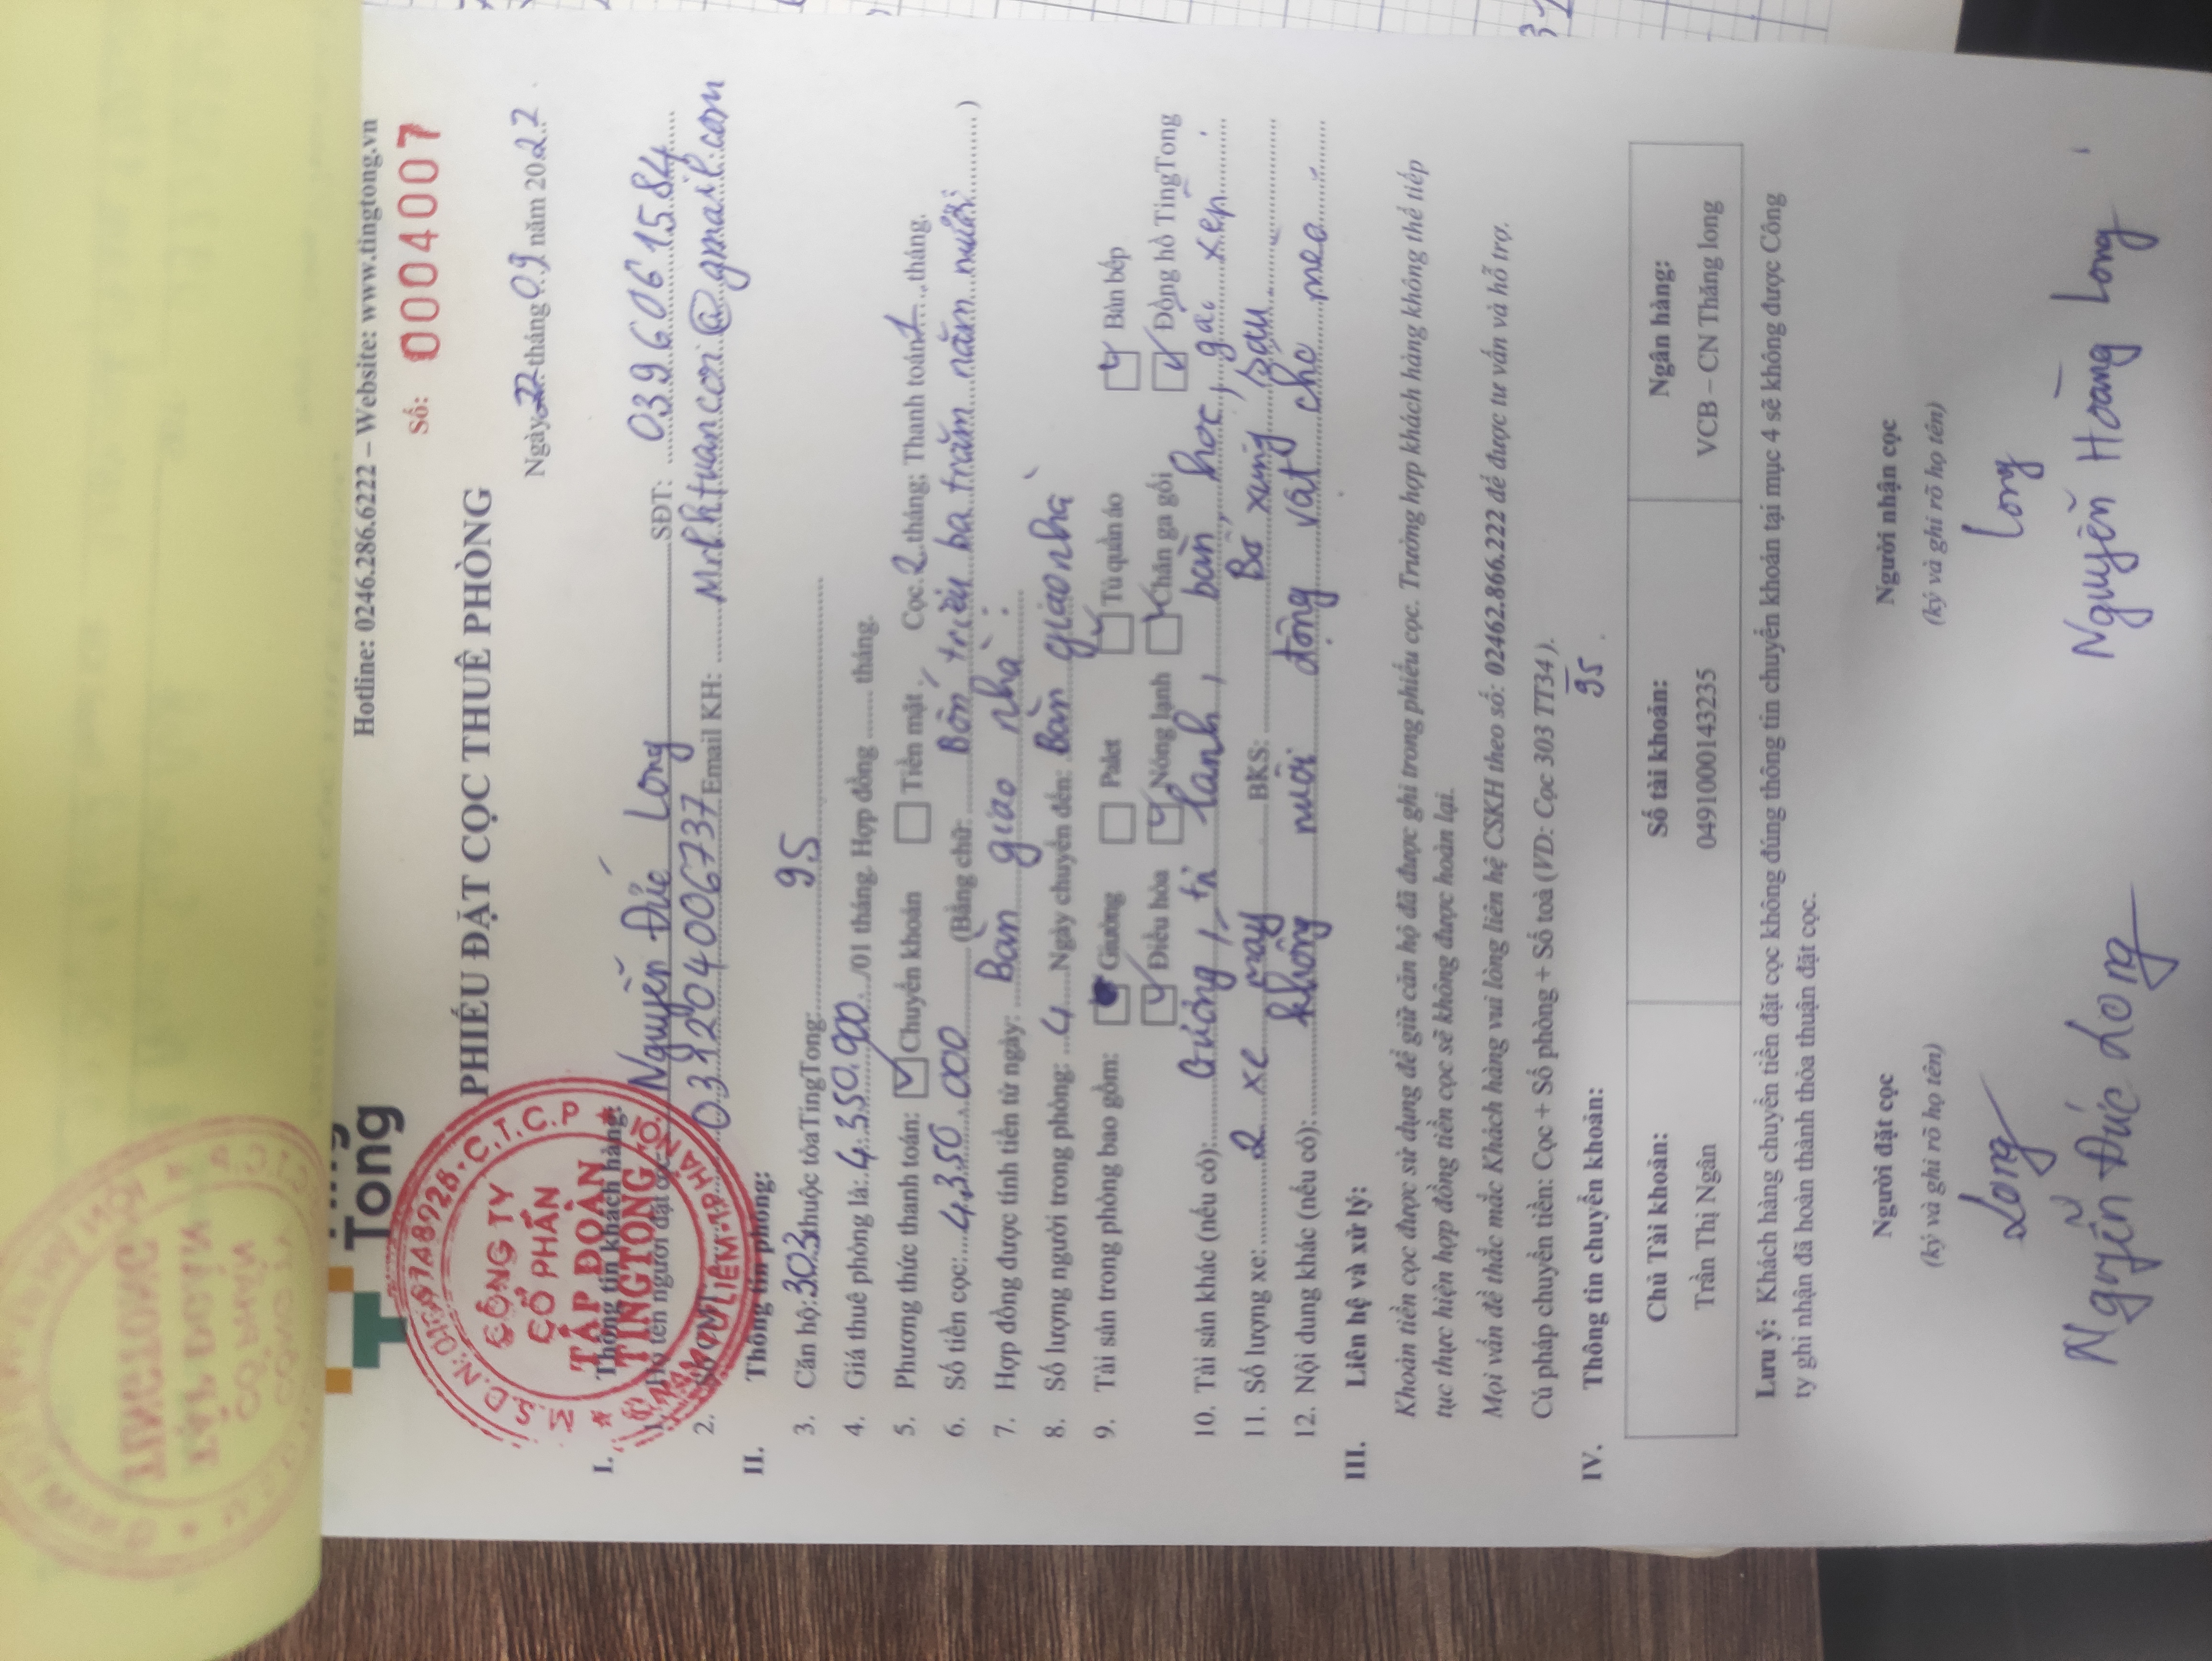 Tong
Hotline: 0246.286.6222 – Website: www.tingtong.vn
Số: 0004007
PHIẾU ĐẶT CỌC THUÊ PHÒNG
Ngày 22 tháng 09 năm 2022
M.S.D.N: C.T.C.P
CÔNG TY
CỔ PHẦN
TẬP ĐOÀN
TINGTONG
I. Thông tin khách hàng:
1. Họ tên người đặt cọc: Nguyễn Đức Long SĐT: 0396061584
2. Số CMT 031204006737 Email KH: Mchhtuancoi@gmail.com
II. Thông tin phòng:
3. Căn hộ: 303 thuộc tòa TingTong: 95
4. Giá thuê phòng là: 4.350.000 /01 tháng. Hợp đồng ........ tháng.
5. Phương thức thanh toán: Chuyển khoản Tiền mặt Cọc 2 tháng; Thanh toán 1 tháng.
6. Số tiền cọc: 4.350.000 (Bằng chữ: Bốn triệu ba trăm năm mươi )
7. Hợp đồng được tính tiền từ ngày: Bàn giao nhà
8. Số lượng người trong phòng: 4 Ngày chuyển đến: Bàn giao nhà
9. Tài sản trong phòng bao gồm: Giường Palet Tủ quần áo Bàn bếp
Điều hòa Nóng lạnh Chăn ga gối Đồng hồ TingTong
10. Tài sản khác (nếu có): Gương, tủ lanh, bàn học, gác xép.
11. Số lượng xe: 2 xe máy BKS: Bổ xung sau
12. Nội dung khác (nếu có): không nuôi động vật chó mèo
III. Liên hệ và xử lý:
Khoản tiền cọc được sử dụng để giữ căn hộ đã được ghi trong phiếu cọc. Trường hợp khách hàng không thể tiếp
tục thực hiện hợp đồng tiền cọc sẽ không được hoàn lại.
Mọi vấn đề thắc mắc Khách hàng vui lòng liên hệ CSKH theo số: 02462.866.222 để được tư vấn và hỗ trợ.
Cú pháp chuyển tiền: Cọc + Số phòng + Số toà (VD: Cọc 303 TT34).
95
IV. Thông tin chuyển khoản:
Chủ Tài khoản: Số tài khoản: Ngân hàng:
Trần Thị Ngân 0491000143235 VCB – CN Thăng long
Lưu ý: Khách hàng chuyển tiền đặt cọc không đúng thông tin chuyển khoản tại mục 4 sẽ không được Công
ty ghi nhận đã hoàn thành thỏa thuận đặt cọc.
Người đặt cọc Người nhận cọc
(ký và ghi rõ họ tên) (ký và ghi rõ họ tên)
Long Long
Nguyễn Đức Long Nguyễn Hoàng Long